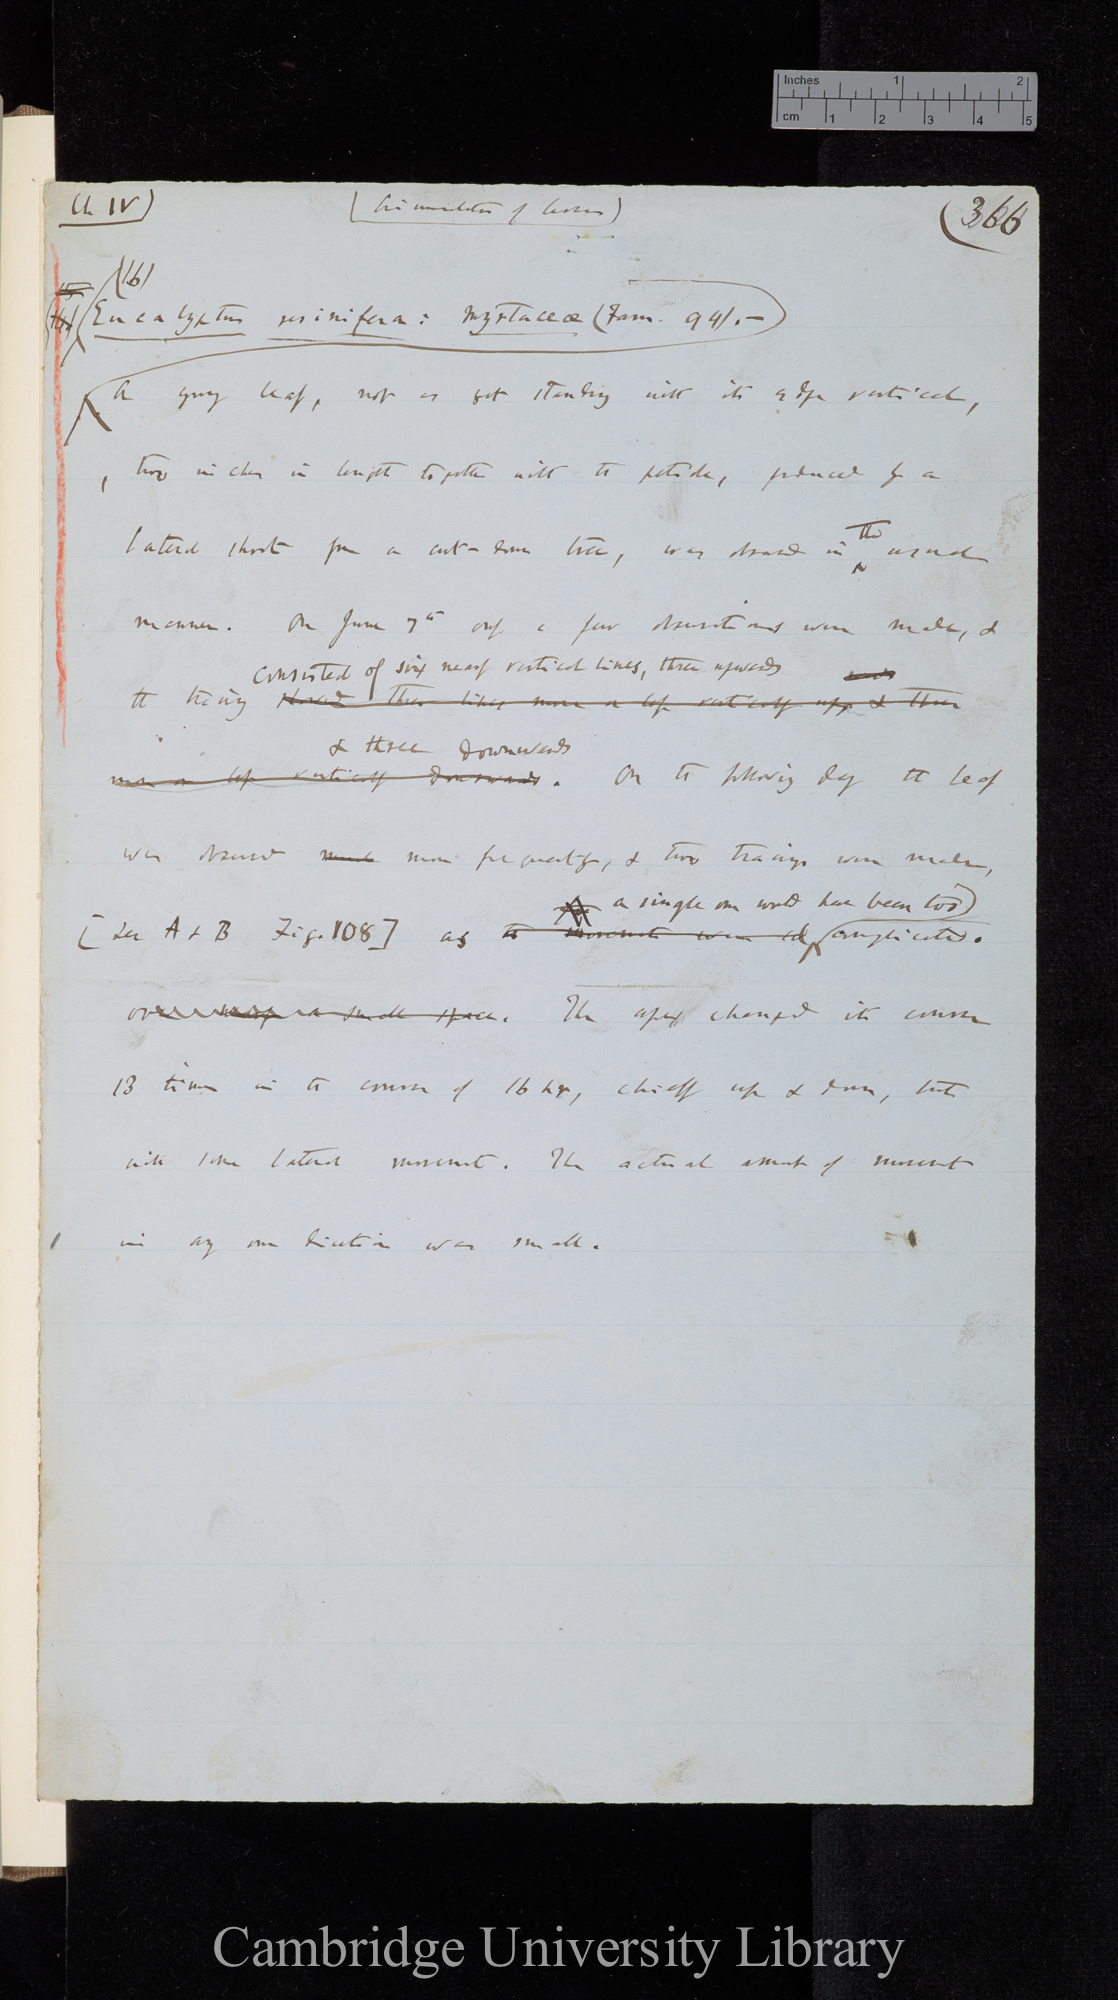 Inches 1 2
cm 1 2 3 4 5
Ch IV)
(Circumnutation of leaves)
(366
(16)
(Eucalyptus resinifera: Myrtaceæ (Fam. 94).—
A young leaf, not as yet standing with its edge vertical,
, two inches in length together with the petiole, produced by a
lateral shoot from a cut-down tree, was observed in the usual
manner. On June 7th only a few observations were made, &
consisted of six nearly vertical lines, three upwards
the tracing showed three lines more or less vertically up & three
& three downwards
more or less vertically downwards. On the following day the leaf
was observed much more frequently, & two tracings were made,
a single one would have been too)
[see A & B Fig. 108] as the movements were complicated.
over a small space. The apex changed its course
13 times in the course of 16 hrs, chiefly up & down, but
with some lateral movement. The actual amount of movement
in any one direction was small.
Cambridge University Library